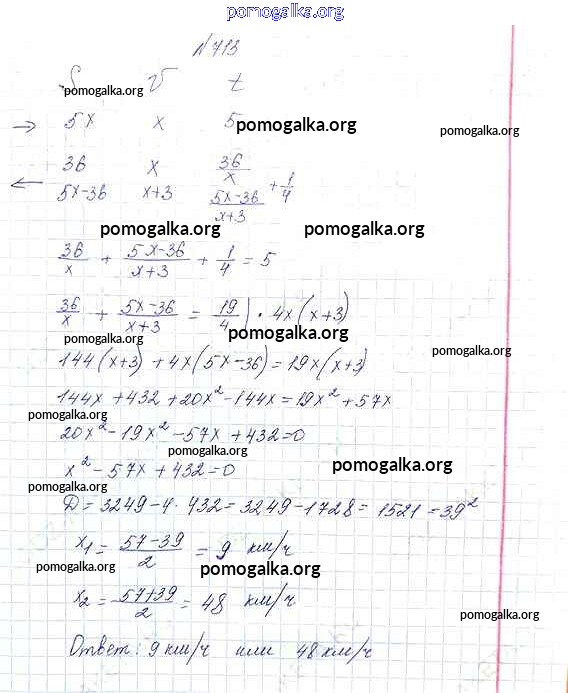 pomogalka.org
N 713
S V t
pomogalka.org
→ 5x x 5
pomogalka.org
pomogalka.org
36 x 36/x
← 5x-36 x+3 (5x-36)/(x+3) + 1/4
pomogalka.org pomogalka.org
36/x + (5x-36)/(x+3) + 1/4 = 5
36/x + (5x-36)/(x+3) = 19/4 | · 4x(x+3)
pomogalka.org
pomogalka.org
pomogalka.org
144(x+3) + 4x(5x-36) = 19x(x+3)
144x + 432 + 20x² - 144x = 19x² + 57x
pomogalka.org
20x² - 19x² - 57x + 432 = 0
pomogalka.org
x² - 57x + 432 = 0
pomogalka.org
pomogalka.org
D = 3249 - 4 · 432 = 3249 - 1728 = 1521 = 39²
x₁ = (57-39)/2 = 9 км/ч
pomogalka.org pomogalka.org
x₂ = (57+39)/2 = 48 км/ч
pomogalka.org
Ответ: 9 км/ч или 48 км/ч